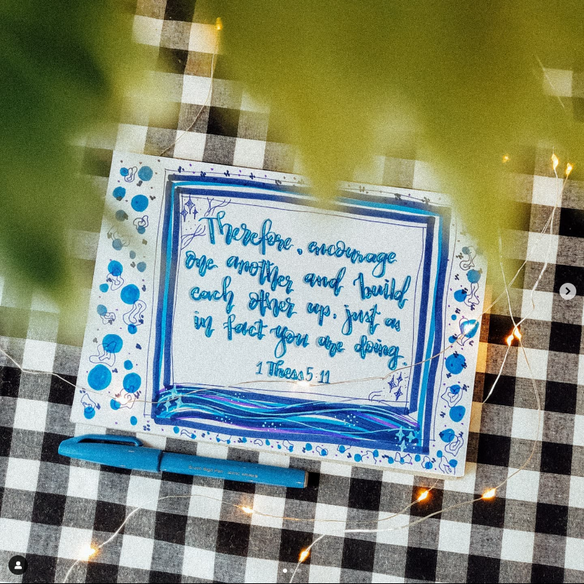 Therefore, encourage
one another and build
each other up, just as
in fact you are doing.
1 Thess 5:11